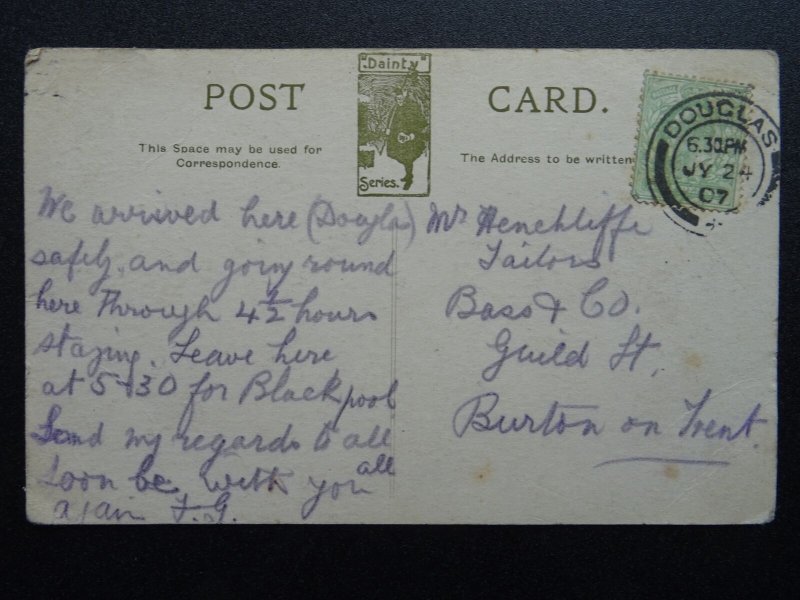 POST
"Dainty"
Series.
CARD.
This Space may be used for
Correspondence.
The Address to be written
DOUGLAS
6.30PM
JY 24
07
We arrived here (Dougla)
safely, and going round
here through 4½ hours
staying. Leave here
at 5-30 for Blackpool
Send my regards to all
Soon be with you all
again F.G.
Mr Henchliffe
Tailors
Bass & Co.
Guild St.
Burton on Trent.